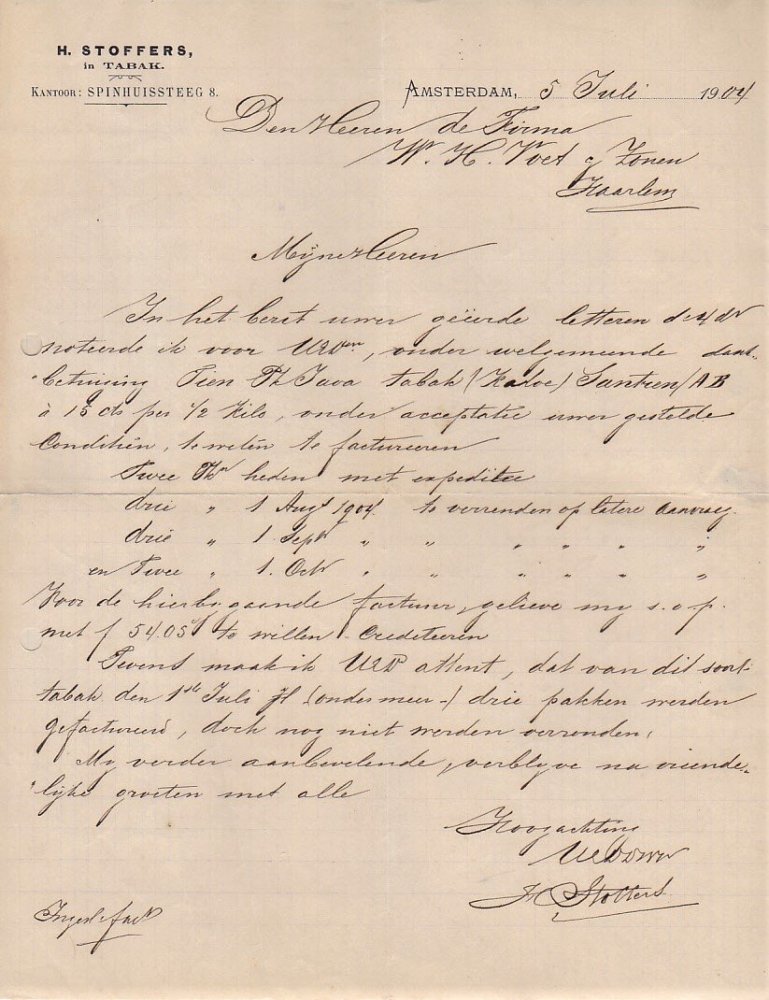 H. STOFFERS,
in TABAK.
KANTOOR: SPINHUISSTEEG 8.
AMSTERDAM, 5 Juli 1904
Den Heeren de Firma
W. H. Voet & Zonen
Haarlem
Mijne Heeren
In het bezit uwer geëerde letteren d. 4 dr
noteerde ik voor UEd, onder welgemeende dank-
betuiging Tien Pk Java tabak (Kadoe) Santeen/AB
à 15 cts per 1/2 Kilo, onder acceptatie uwer gestelde
Conditiën, te weten te factureeren
Twee Pkn heden met expeditie
drie " 1 Augt 1904. te verzenden op latere aanvraag.
drie " 1 Septr " " " " " "
en Twee " 1. Octr " " " " " "
Voor de hierbygaande factuur, gelieve my s.o.p.
met f 54.05 te willen Crediteeren
Tevens maak ik UEd attent, dat van dit soort
tabak den 1ste Juli jl (onder meer -) drie pakken werden
gefactureerd, doch nog niet werden verzonden,
My verder aanbevelende, verblyve na vriende-
lijke groeten met alle
Hoogachting
UEdDwr
H Stoffers
Inges. fact